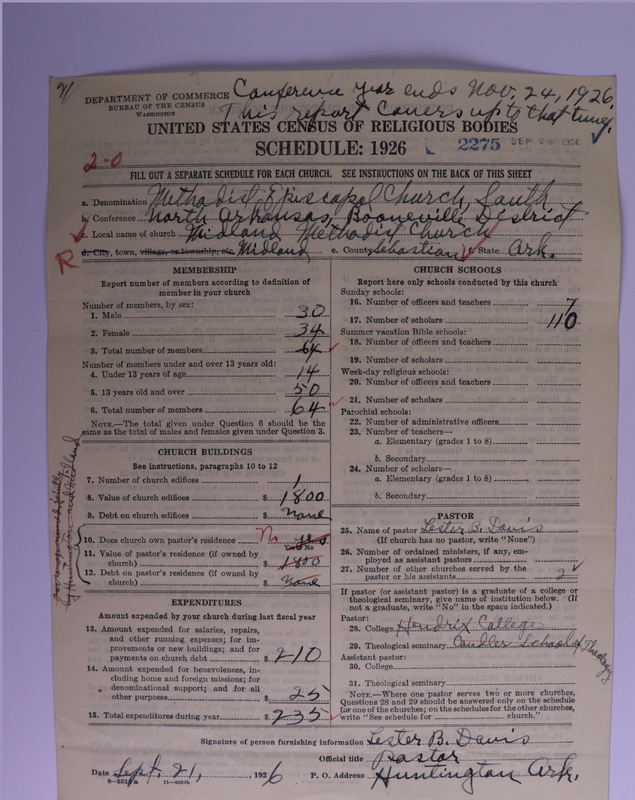 DEPARTMENT OF COMMERCE
BUREAU OF THE CENSUS
WASHINGTON
Conference year ends Nov. 24, 1926.
This report covers up to that time.
UNITED STATES CENSUS OF RELIGIOUS BODIES
SCHEDULE: 1926
2275 SEP 1926
2-0
FILL OUT A SEPARATE SCHEDULE FOR EACH CHURCH. SEE INSTRUCTIONS ON THE BACK OF THIS SHEET
a. Denomination Methodist Episcopal Church, South
b. Conference North Arkansas, Booneville District
c. Local name of church Midland Methodist Church
d. City, town, village, or township, etc. Midland e. County Sebastian f. State Ark.
R
MEMBERSHIP
Report number of members according to definition of
member in your church
Number of members, by sex:
1. Male 30
2. Female 34
3. Total number of members 64
Number of members under and over 13 years old:
4. Under 13 years of age 14
5. 13 years old and over 50
6. Total number of members 64
NOTE.—The total given under Question 6 should be the
same as the total of males and females given under Question 3.
CHURCH BUILDINGS
See instructions, paragraphs 10 to 12
7. Number of church edifices 1
8. Value of church edifices $ 1800
9. Debt on church edifices $ none
10. Does church own pastor's residence No yes
Yes or No
11. Value of pastor's residence (if owned by
church) $ 1800
12. Debt on pastor's residence (if owned by
church) $ None
parsonage owned jointly
by Huntington and Midland
EXPENDITURES
Amount expended by your church during last fiscal year
13. Amount expended for salaries, repairs,
and other running expenses; for im-
provements or new buildings; and for
payments on church debt $ 210
14. Amount expended for benevolences, in-
cluding home and foreign missions; for
denominational support; and for all
other purposes $ 25
15. Total expenditures during year $ 235
CHURCH SCHOOLS
Report here only schools conducted by this church
Sunday schools:
16. Number of officers and teachers 7
17. Number of scholars 110
Summer vacation Bible schools:
18. Number of officers and teachers
19. Number of scholars
Week-day religious schools:
20. Number of officers and teachers
21. Number of scholars
Parochial schools:
22. Number of administrative officers
23. Number of teachers—
a. Elementary (grades 1 to 8)
b. Secondary
24. Number of scholars—
a. Elementary (grades 1 to 8)
b. Secondary
PASTOR
25. Name of pastor Lester B. Davis
(If church has no pastor, write "None")
26. Number of ordained ministers, if any, em-
ployed as assistant pastors
27. Number of other churches served by the
pastor or his assistants 2
If pastor (or assistant pastor) is a graduate of a college or
theological seminary, give name of institution below. (If
not a graduate, write "No" in the space indicated.)
Pastor:
28. College Hendrix College
29. Theological seminary Candler School of Theology
Assistant pastor:
30. College
31. Theological seminary
NOTE.—Where one pastor serves two or more churches,
Questions 28 and 29 should be answered only on the schedule
for one of the churches; on the schedules for the other churches,
write "See schedule for church."
Signature of person furnishing information Lester B. Davis
Official title Pastor
Date Sept. 21, 1926 P. O. Address Huntington Ark.